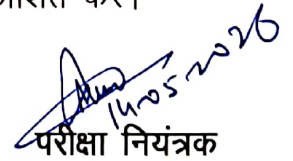 करें।
14-05-2026
परीक्षा नियंत्रक